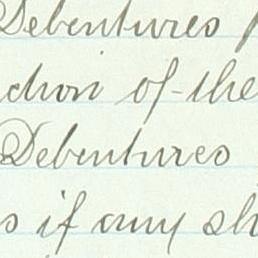 Debentures
ction of the
Debentures
s if any sh